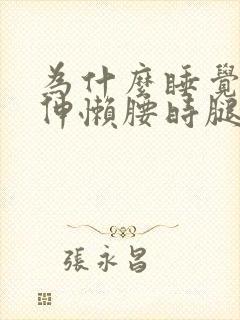 為什麼睡覺
伸懶腰時腿
張永昌